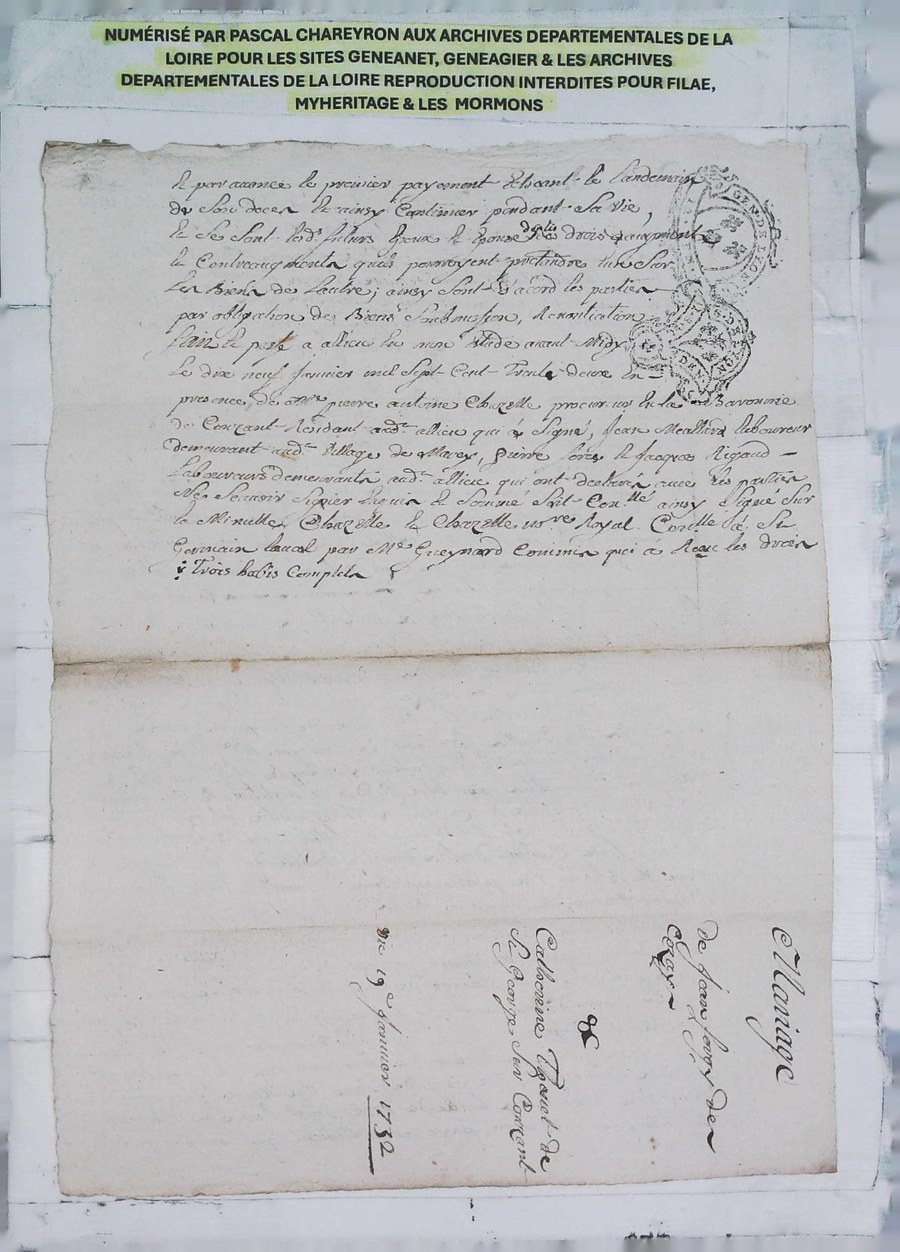 NUMÉRISÉ PAR PASCAL CHAREYRON AUX ARCHIVES DEPARTEMENTALES DE LA
LOIRE POUR LES SITES GENEANET, GENEAGIER & LES ARCHIVES
DEPARTEMENTALES DE LA LOIRE REPRODUCTION INTERDITES POUR FILAE,
MYHERITAGE & LES MORMONS
et par avance le premier payement le landemain
de son deces et ainsy Continuer pendant Sa vie,
Et Se Sont lesd. futurs Epoux et Epouse drois
et Contreaugments quils pourroyent pretandre lun Sur
les Biens de Lautre; ainsy Sont d'acord les parties
par obligation de Biens Soubmission, Renontiation
fait et a allieu En mon Etude avant Midy
le dix neuf Janvier mil Sept Cent Trente deux En
presence de pierre antoine Chazelle procureur En la Baronnie
de Couzant Residant aud. allieu qui à Signé, Jean Mealliard laboureur
demeurant aud. Village de pierre et Jacques Rigaud
Laboureurs demeurants aud. allieu qui ont declarés avec les parties
Ne Scavoir Signer Enquis et ainsy Signé Sur
la Minutte, Chazelle et Chazelle no.re Royal Conttlé a St
Germain laval par Me Gueynard Commis qui à Receu les droits
Trois habis Complets
GEN. DE LYON
Mariage
de Jean de
&
Catherine de
St George Sur Couzant
Du 19e Janvier 1732